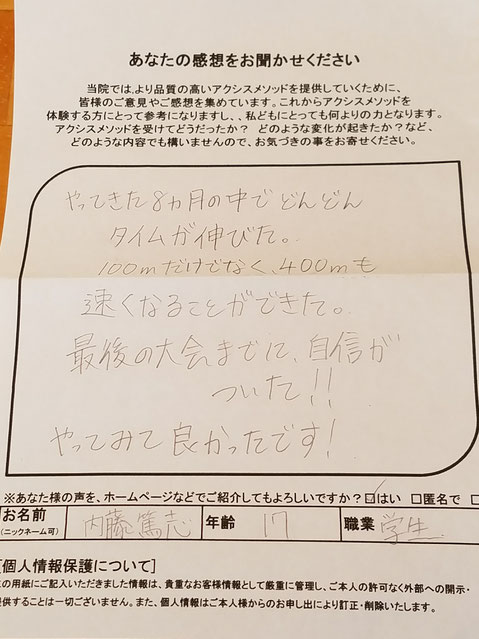 あなたの感想をお聞かせください
当院では、より品質の高いアクシスメソッドを提供していくために、
皆様のご意見やご感想を集めています。これからアクシスメソッドを
体験する方にとって参考になりますし、、私どもにとっても何よりの力となります。
アクシスメソッドを受けてどうだったか？ どのような変化が起きたか？など、
どのような内容でも構いませんので、お気づきの事をお寄せください。
やってきた8ヵ月の中でどんどん
タイムが伸びた。
100mだけでなく、400mも
速くなることができた。
最後の大会までに、自信が
ついた!!
やってみて良かったです!
※あなた様の声を、ホームページなどでご紹介してもよろしいですか？☑はい □匿名で □
お名前 (ニックネーム可) 内藤篤志 年齢 17 職業 学生
[個人情報保護について]
の用紙にご記入いただきました情報は、貴重なお客様情報として厳重に管理し、ご本人の許可なく外部への開示・
提供することは一切ございません。また、個人情報はご本人様からのお申し出により訂正・削除いたします。